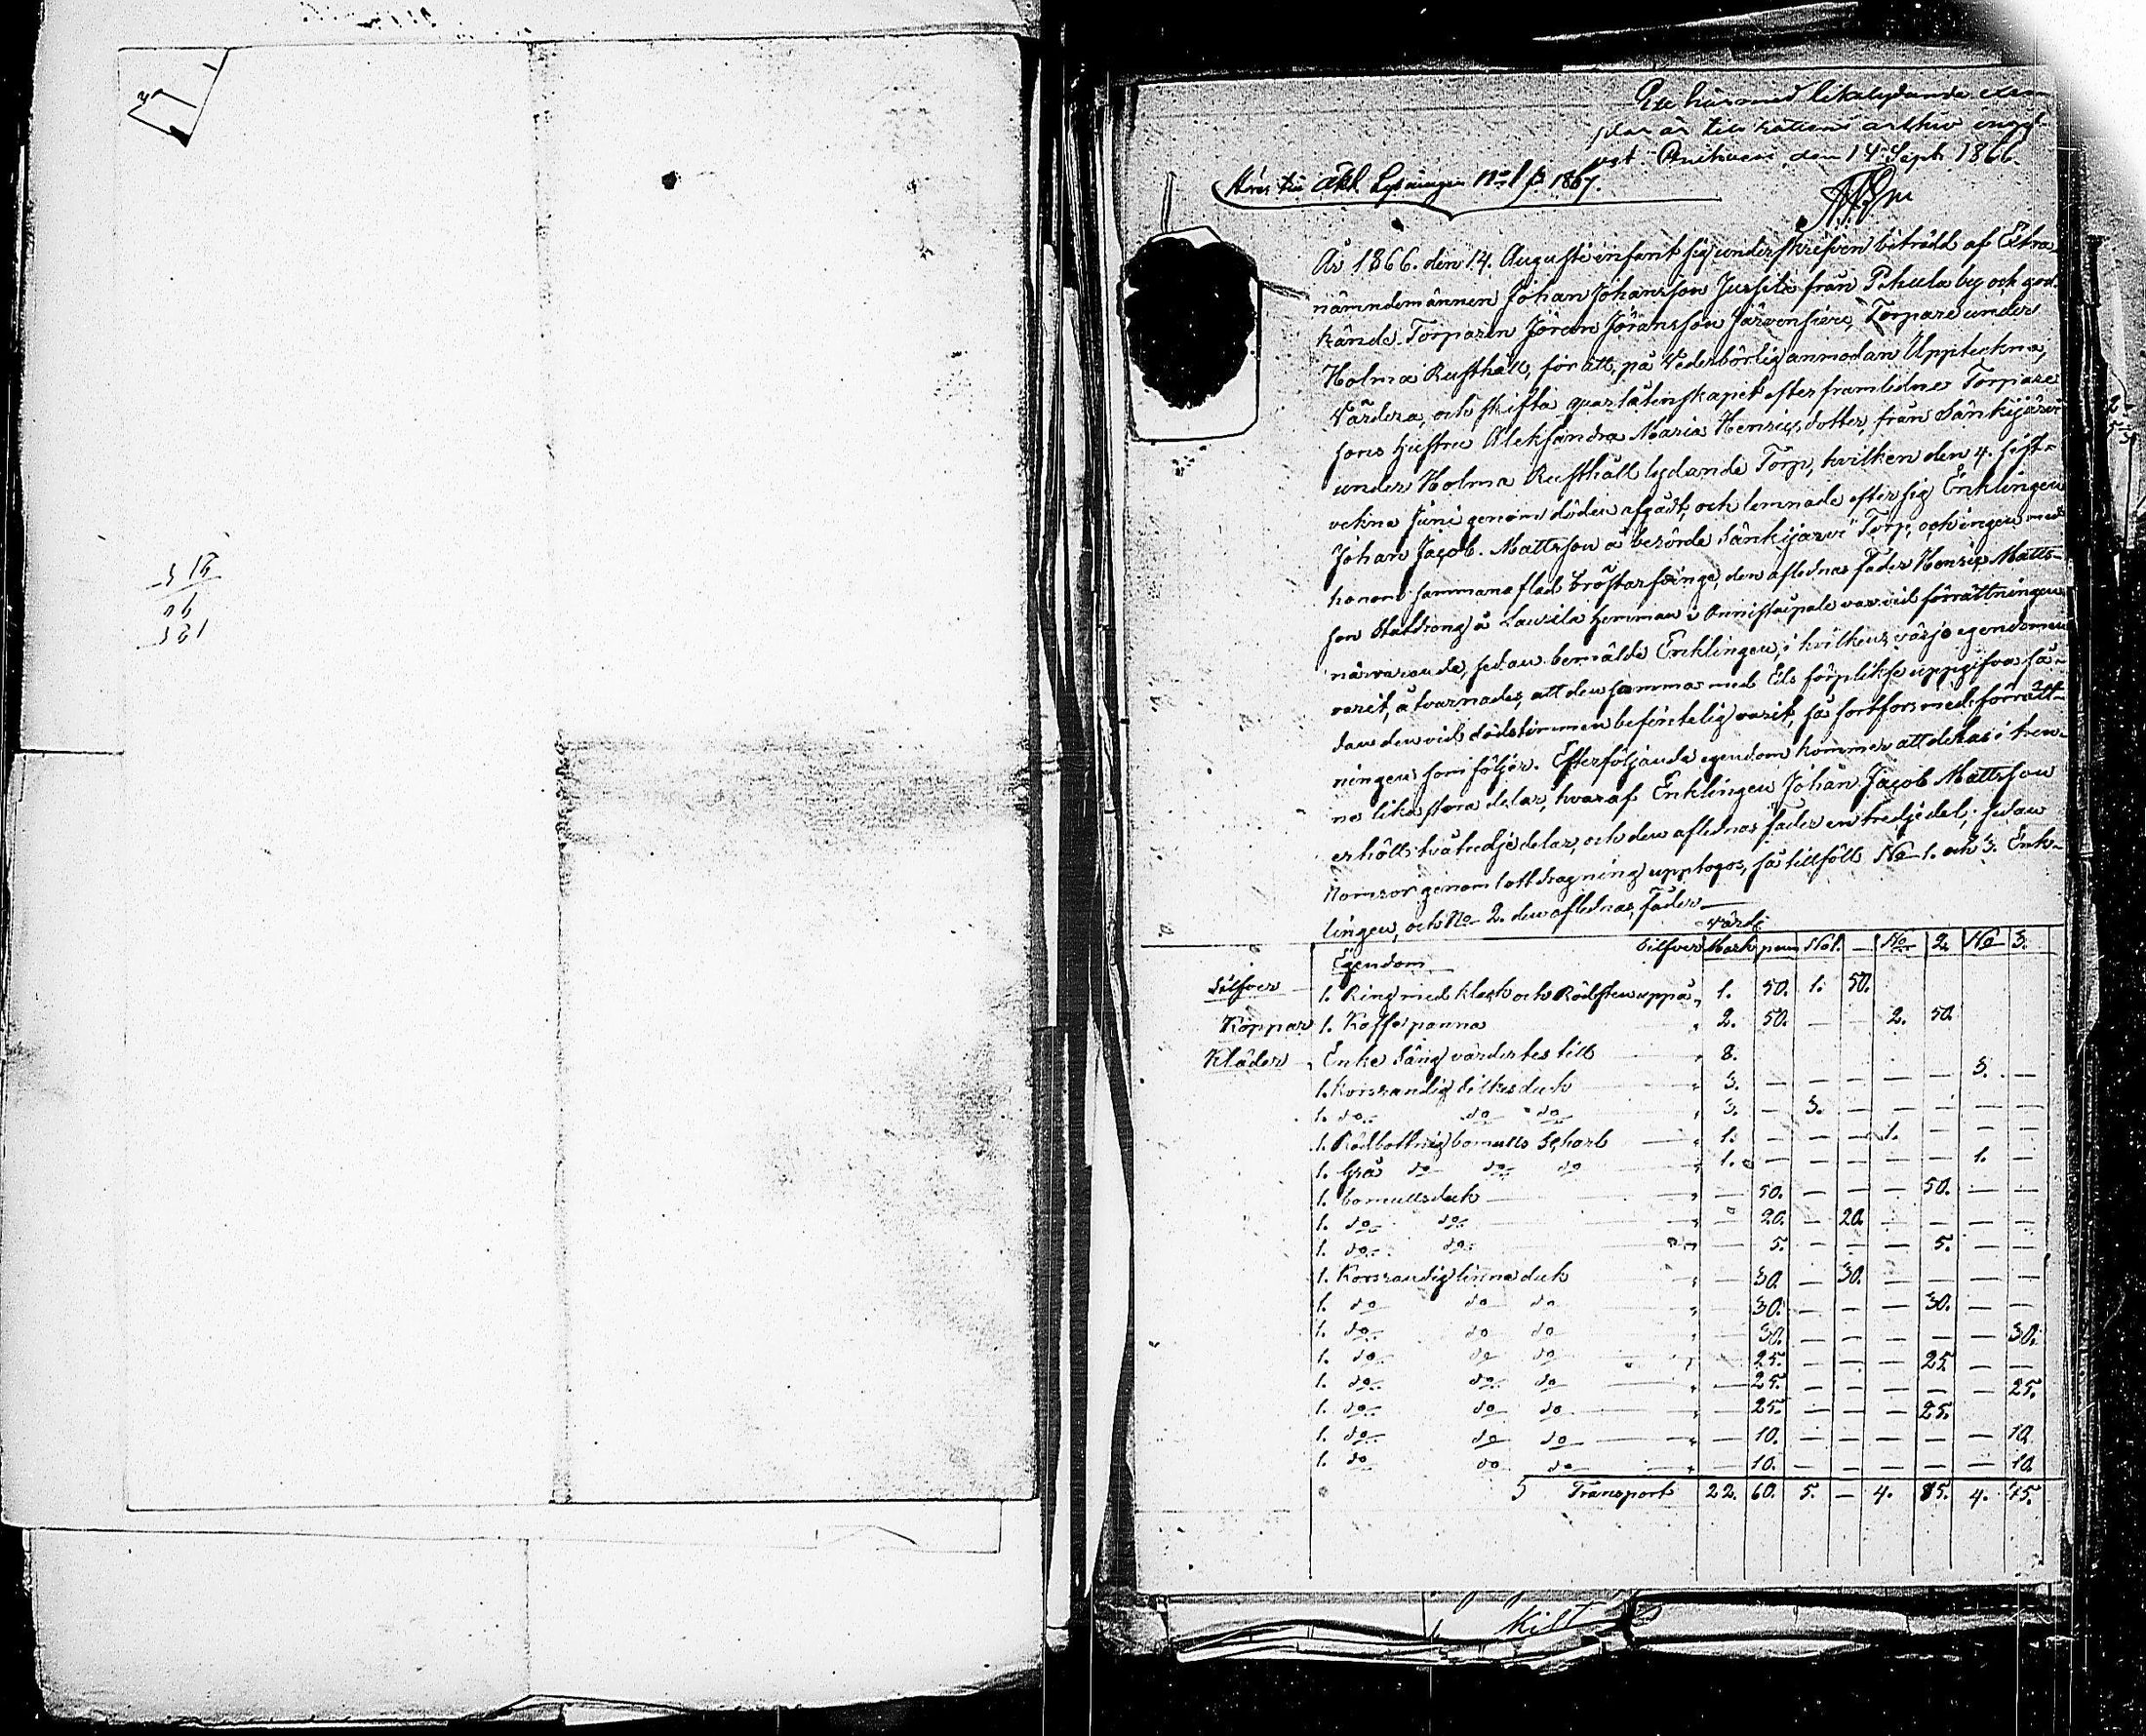 Ett härmed likalydande exem
plar är till Rättens arkiv ingif-
vet. den 14 Sept. 1866.
Hörer till Lysningen No 1 p. 1867.
År 1866. den 14. Augusti infant sig underskrifven biträdd af Extra
nämndemännen Johan Johansson Jussila från Pehula by och god-
kände Torparen Jöran Jöransson Järvensivu, Torpare under
Holma Rusthåll, för att, på Vederbörlig anmodan Uppteckna,
Värdera, och skifta qvarlåtenskapet efter framlidne Torpare
sons hustru Aleksandra Maria Henricsdotter, från Sänkijärvi
under Holma Rusthåll lydande Torp, hvilken den 4. sist-
vekne Juni genom döden afgådt, och lemnade efter sig Enklingen
Johan Jacob Mattsson å berörde Sänkijärvi Torp, och ingen med
honom sammanaflad bröstarfvinge, den aflednas fader Henric Matts-
son Staldrong å Laurila hemman i Onnistaipale var vid förrättningen
närvarande, sedan bemälde Enklingen, i hvilkens värjo egendomen
varit, åtvarnades, att den samma med Eds förpliktse uppgifva så-
dan den vid dödstimmen befintelig varit, så fortfors med förrätt-
ningen som följer. Efterföljande egendom kommer att delas i tren-
ne lika stora delar, hvaraf Enklingen Johan Jacob Mattsson
erhölls två tredjedelar, och den aflednas fader en tredjedel; sedan
Nomror genom lottdragning upptogos, så tillföll No 1. och 3. Enk-
lingen, och No 2. den aflednas fader
Värde
Egendom Silfver Mark penn No 1. — No 2. No 3.
Silfver 1. Ring med klack och Rödsten uppå, 1. 50. 1. 50.
Koppar 1. Kaffepanna 2. 50. — — 2. 50
Kläder Enke Säng värdertes till 8.
1. Korsrandig silkesduk 3. — — — — — 3. —
1. do do do 3. — 3. — — — — —
1. Rödbottnig bomulls Scharl 1. — — — 1. — — —
1. Grå do do do 1. — — — — — 1. —
1. bomullsduk — 50. — — — 50. — —
1. do do — 20. — 20. — — — —
1. do do — 5. — — — 5. — —
1. Korsrandig linne duk — 30. — 30. — — — —
1. do do do 30. — — — 30. — —
1. do do do 30. — — — — — 30.
1. do do do 25. — — — 25. — —
1. do do do — 25. — — — — — 25.
1. do do do — 25. — — — 25.
1. do do do — 10. — — — — — 10.
1. do do do — 10. — — — — — 10.
Transport 22. 60. 5. — 4. 85. 4. 75.